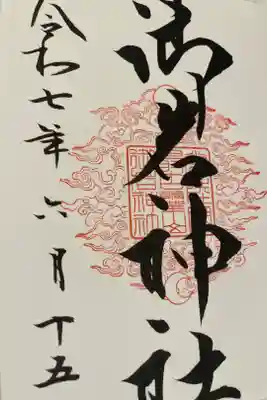 御岩神社
令和七年六月十五